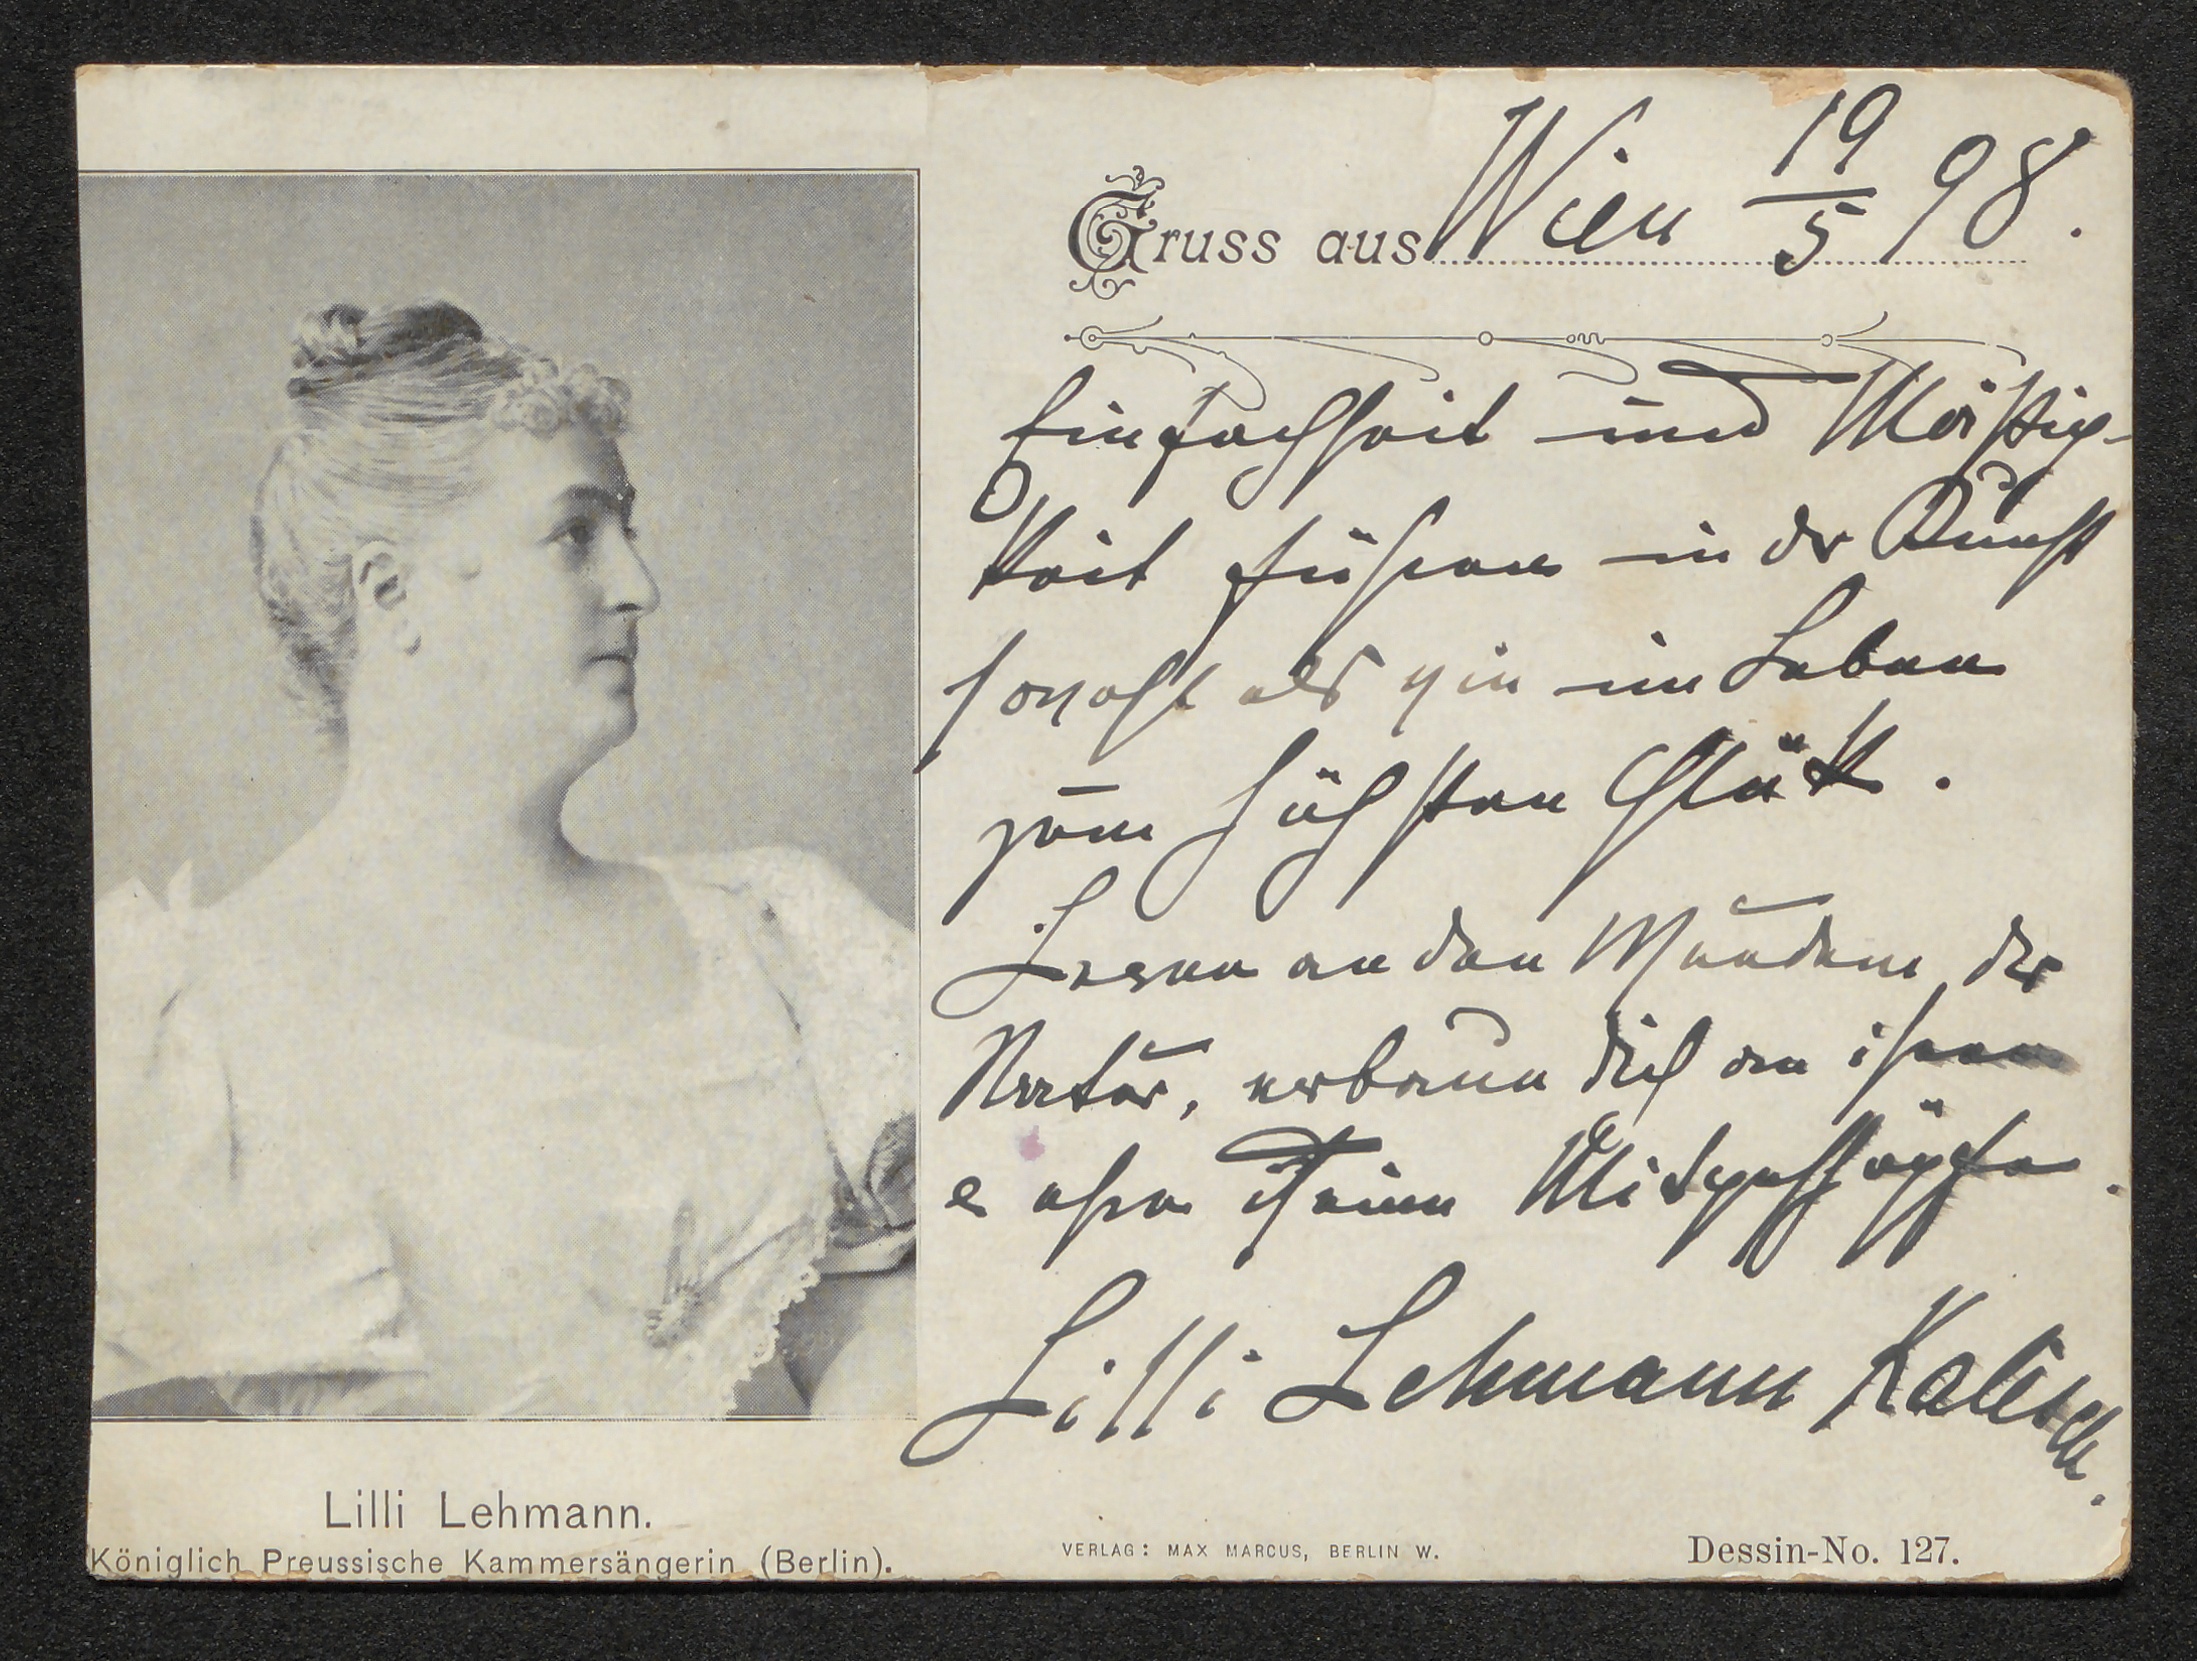 Gruss aus Wien 19/5 98.
Einfachheit und Mäßig-
keit führen in der Kunst
sowohl als wie im Leben
zum höchsten Glück.
Lerne an den Wundern der
Natur, erbaue dich an ihnen
ehre deine Mitgeschöpfe.
Lilli Lehmann Kalisch.
Lilli Lehmann.
Königlich Preussische Kammersängerin (Berlin).
VERLAG: MAX MARCUS, BERLIN W.
Dessin-No. 127.